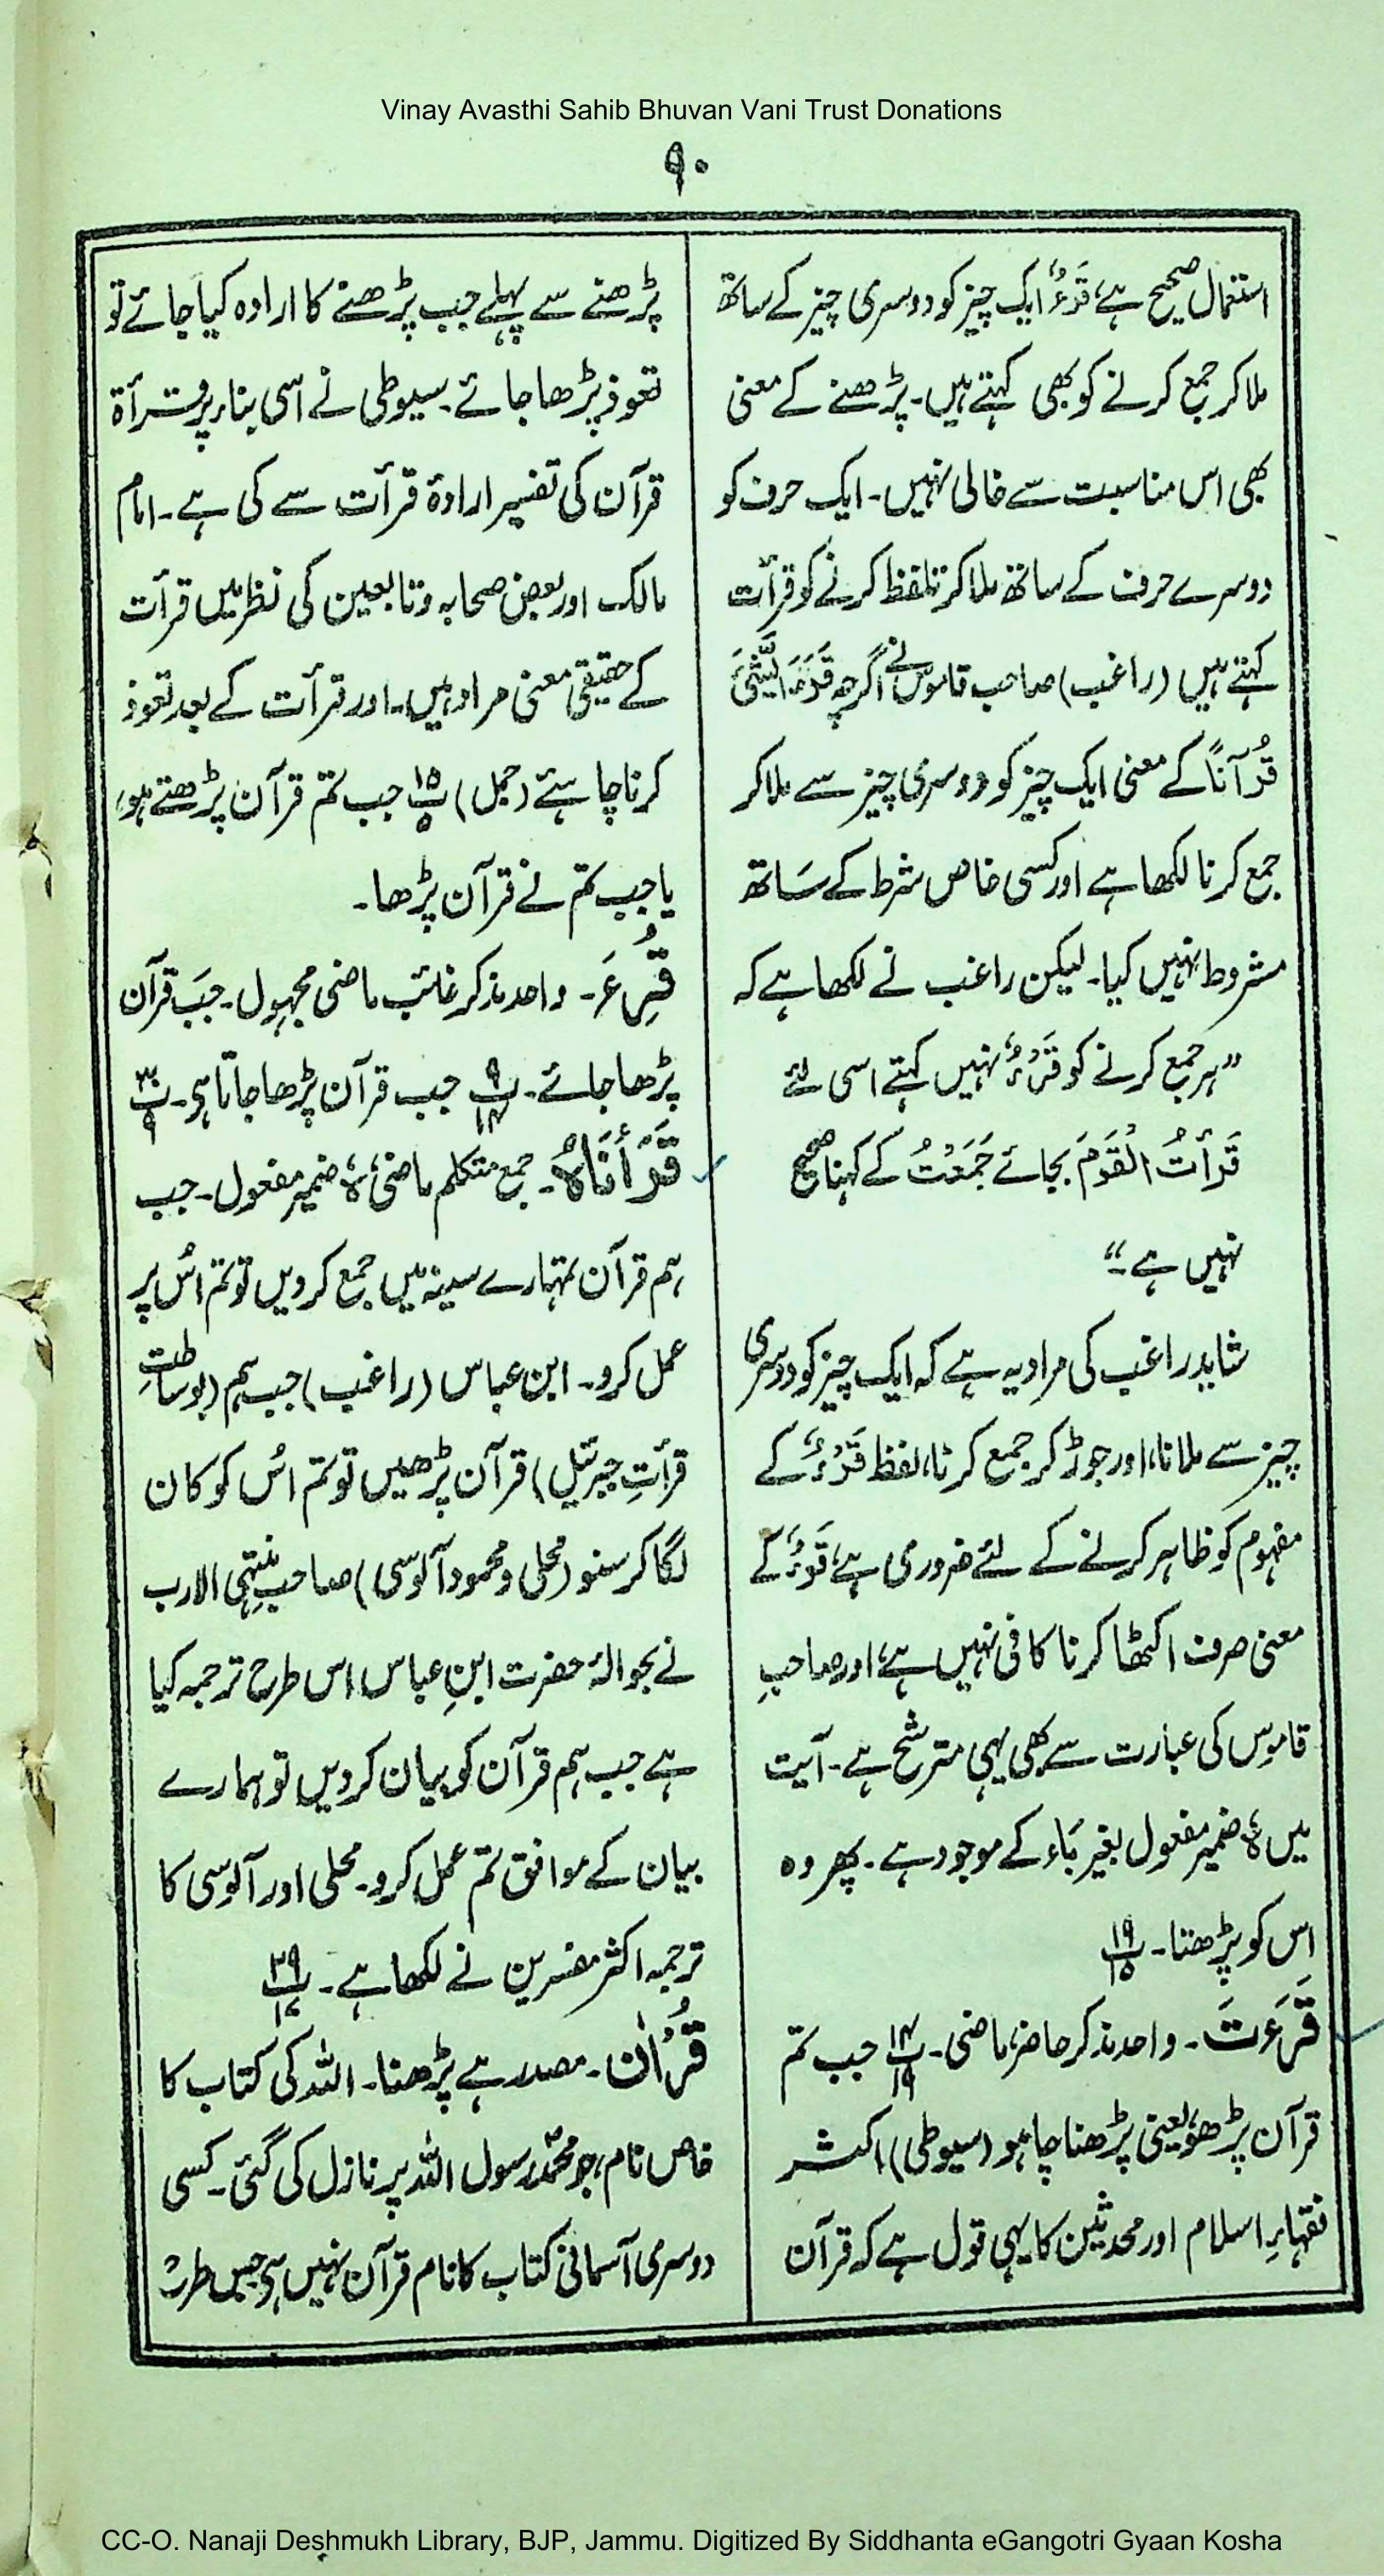 Vinay Avasthi Sahib Bhuvan Vani Trust Donations
۹۰
استعمال صحیح ہے، قَرْءٌ ایک چیز کو دوسری چیز کے ساتھ
ملا کر جمع کرنے کو بھی کہتے ہیں۔ پڑھنے کے معنی
بھی اس مناسبت سے خالی نہیں۔ ایک حرف کو
دوسرے حرف کے ساتھ ملا کر تلفظ کرنے کو قرأت
کہتے ہیں (راغب) صاحب قاموس نے اگرچہ قَرَءَ الشَّیْئَ
قُرْآنًا کے معنی ایک چیز کو دوسری چیز سے ملا کر
جمع کرنا لکھا ہے اور کسی خاص شرط کے سَاتھ
مشروط نہیں کیا۔ لیکن راغب نے لکھا ہے کہ
”ہر جمع کرنے کو قَرْءٌ نہیں کہتے اسی لئے
قَرَأتُ الْقَوْمَ بجائے جَمَعْتُ کے کہنا صحیح
نہیں ہے۔“
شاید راغب کی مراد یہ ہے کہ ایک چیز کو دوسری
چیز سے ملانا، اور جوڑ کر جمع کرنا، لفظ قَرْءٌ کے
مفہوم کو ظاہر کرنے کے لئے ضروری ہے، قَرْءٌ کے
معنی صرف اکٹھا کرنا کافی نہیں ہے، اور صاحبِ
قاموس کی عبارت سے بھی یہی مترشح ہے۔ آیت
میں ہٗ ضمیر مفعول بغیر بَاء کے موجود ہے۔ پھر وہ
اس کو پڑھتا۔ پ۱۹ ۱۵
قَرَءَتَ۔ واحد مذکر حاضر، ماضی۔ پ۱۴ ۱۹ جب تم
قرآن پڑھو، یعنی پڑھنا چاہو (سیوطی) اکثر
فقہاءِ اسلام اور محدثین کا یہی قول ہے کہ قرآن
پڑھنے سے پہلے جب پڑھنے کا ارادہ کیا جائے تو
تعوذ پڑھا جائے۔ سیوطی نے اسی بناء پر قرأۃ
قرآن کی تفسیر ارادۂ قرأت سے کی ہے۔ امام
مالک اور بعض صحابہ و تابعین کی نظر میں قرأت
کے حقیقی معنی مراد ہیں۔ اور قرأت کے بعد تعوذ
کرنا چاہئے (جمل) پ۱۵ ۵ جب تم قرآن پڑھتے ہو،
یا جب تم نے قرآن پڑھا۔
قُرِءَ۔ واحد مذکر غائب ماضی مجہول۔ جبَ قرآن
پڑھا جائے۔ پ۹ ۱۴ جب قرآن پڑھا جاتا ہی۔ پ۳۰ ۹
قَرَأنَاہُ۔ جمع متکلم ماضی، ہٗ ضمیر مفعول۔ جب
ہم قرآن تمہارے سینہ میں جمع کر دیں تو تم اُس پر
عمل کرو۔ ابن عباس (راغب) جب ہم (بوساطتِ
قرأتِ جبرئیل) قرآن پڑھیں تو تم اُس کو کان
لگا کر سنو (محلی و محمود آلوسی) صاحب منتہی الارب
نے بحوالہٗ حضرت ابنِ عباس اس طرح ترجمہ کیا
ہے جب ہم قرآن کو بیان کر دیں تو ہمارے
بیان کے موافق تم عمل کرو۔ محلی اور آلوسی کا
ترجمہ اکثر مفسرین نے لکھا ہے۔ پ۲۹ ۱۷
قُرْاٰن۔ مصدر ہے پڑھنا۔ اللہ کی کتاب کا
خاص نام، جو محمدؐ رسول اللہ پر نازل کی گئی۔ کسی
دوسری آسمانی کتاب کا نام قرآن نہیں ہی جس طرح
CC-O. Nanaji Deshmukh Library, BJP, Jammu. Digitized By Siddhanta eGangotri Gyaan Kosha